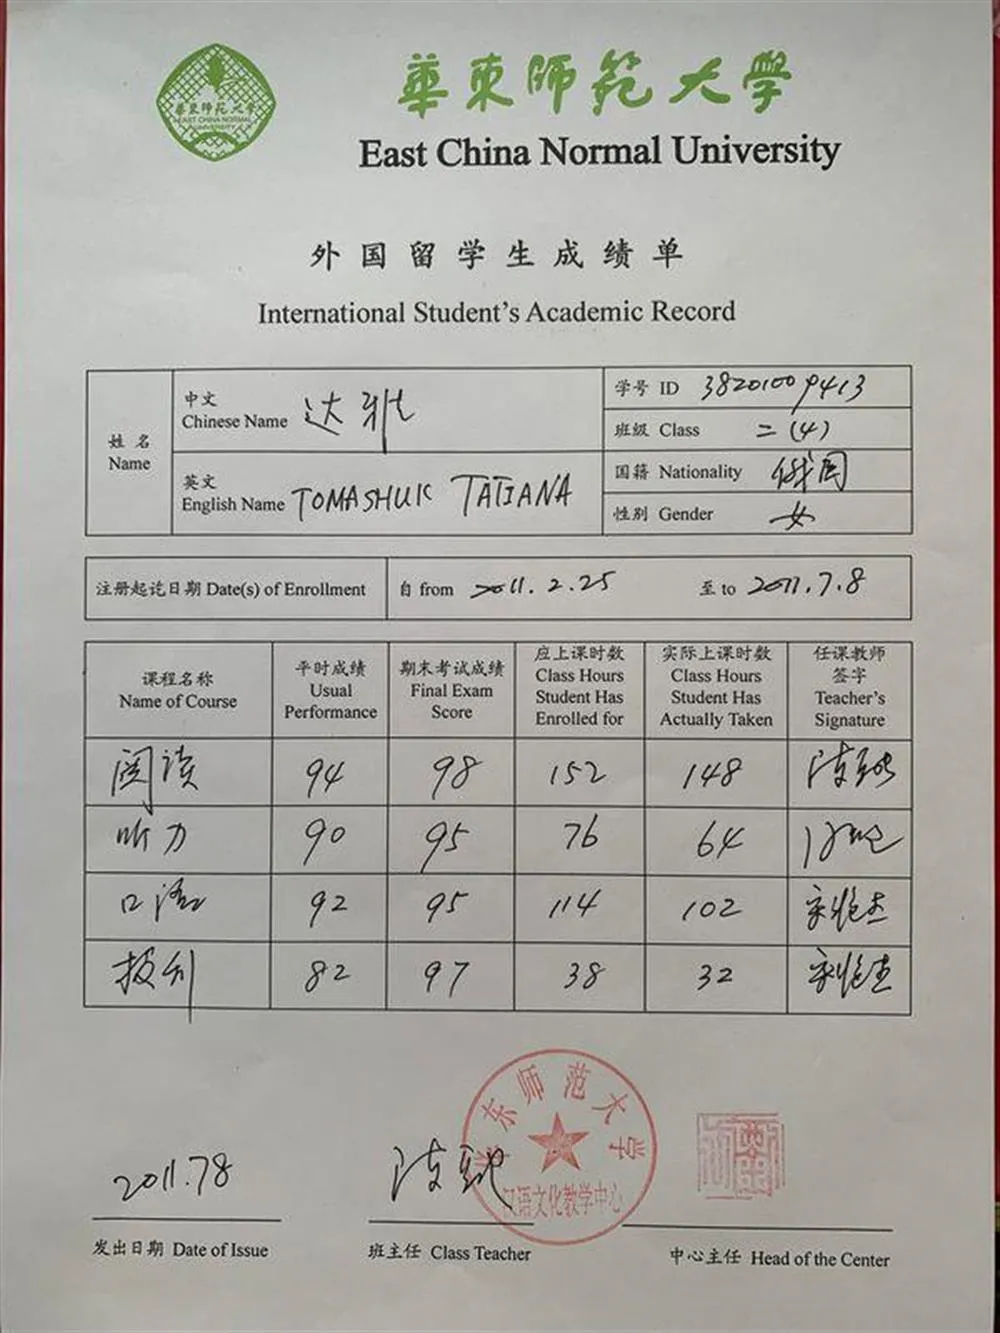 華東师范大学
EAST CHINA NORMAL
UNIVERSITY
華東师范大學
East China Normal University
外国留学生成绩单
International Student's Academic Record
姓名
Name
中文
Chinese Name 达雅
英文
English Name TOMASHUK TATIANA
学号 ID 38201009413
班级 Class 二(4)
国籍 Nationality 俄国
性别 Gender 女
注册起讫日期 Date(s) of Enrollment 自 from 2011.2.25 至 to 2011.7.8
课程名称
Name of Course
平时成绩
Usual
Performance
期末考试成绩
Final Exam
Score
应上课时数
Class Hours
Student Has
Enrolled for
实际上课时数
Class Hours
Student Has
Actually Taken
任课教师
签字
Teacher's
Signature
阅读 94 98 152 148
听力 90 95 76 64
口语 92 95 114 102
报刊 82 97 38 32
华东师范大学
汉语文化教学中心
2011.78
发出日期 Date of Issue
班主任 Class Teacher
中心主任 Head of the Center